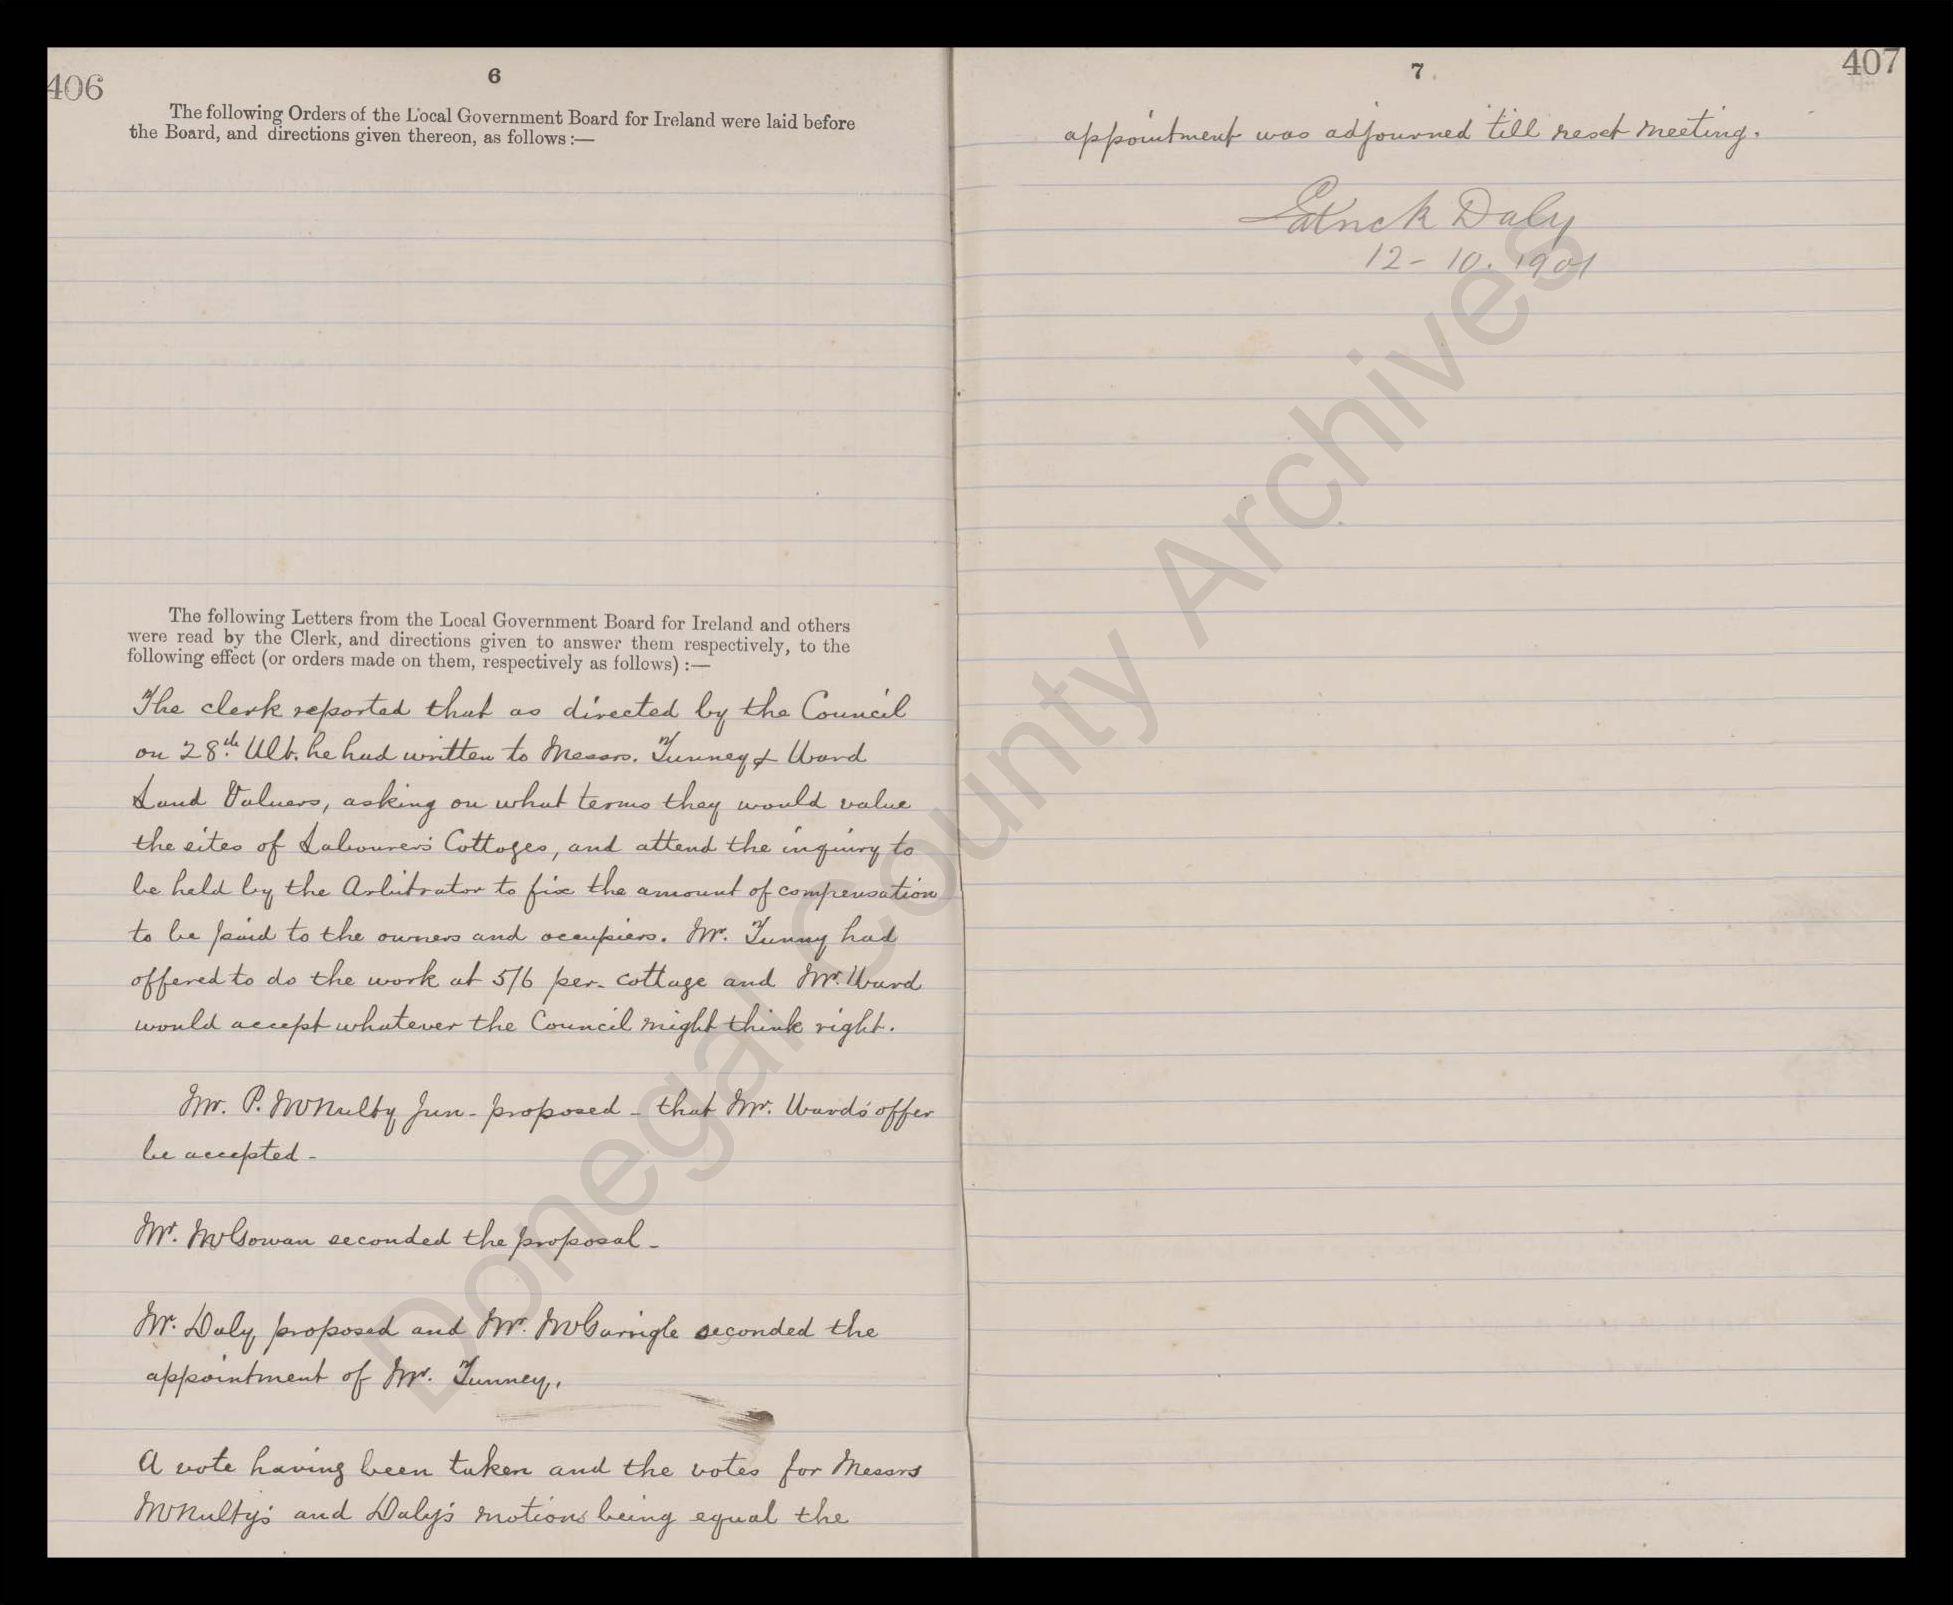 406
6
The following Orders of the Local Government Board for Ireland were laid before
the Board, and directions given thereon, as follows :—
The following Letters from the Local Government Board for Ireland and others
were read by the Clerk, and directions given to answer them respectively, to the
following effect (or orders made on them, respectively as follows) :—
The clerk reported that as directed by the Council
on 28th Ult. he had written to Messrs. Tunney & Ward
Land Valuers, asking on what terms they would value
the sites of Labourers' Cottages, and attend the inquiry to
be held by the Arbitrator to fix the amount of compensation
to be paid to the owners and occupiers. Mr. Tunny had
offered to do the work at 5/6 per. cottage and Mr. Ward
would accept whatever the Council might think right.
Mr. P. McNulty Jun - proposed - that Mr. Ward's offer
be accepted -
Mr. McGowan seconded the proposal -
Mr. Daly proposed and Mr. McGarrigle seconded the
appointment of Mr. Tunney.
A vote having been taken and the votes for Messrs
McNulty's and Daly's motions being equal the
407
7
appointment was adjourned till next meeting.
Patrick Daly
12 - 10. 1901
Donegal County Archives